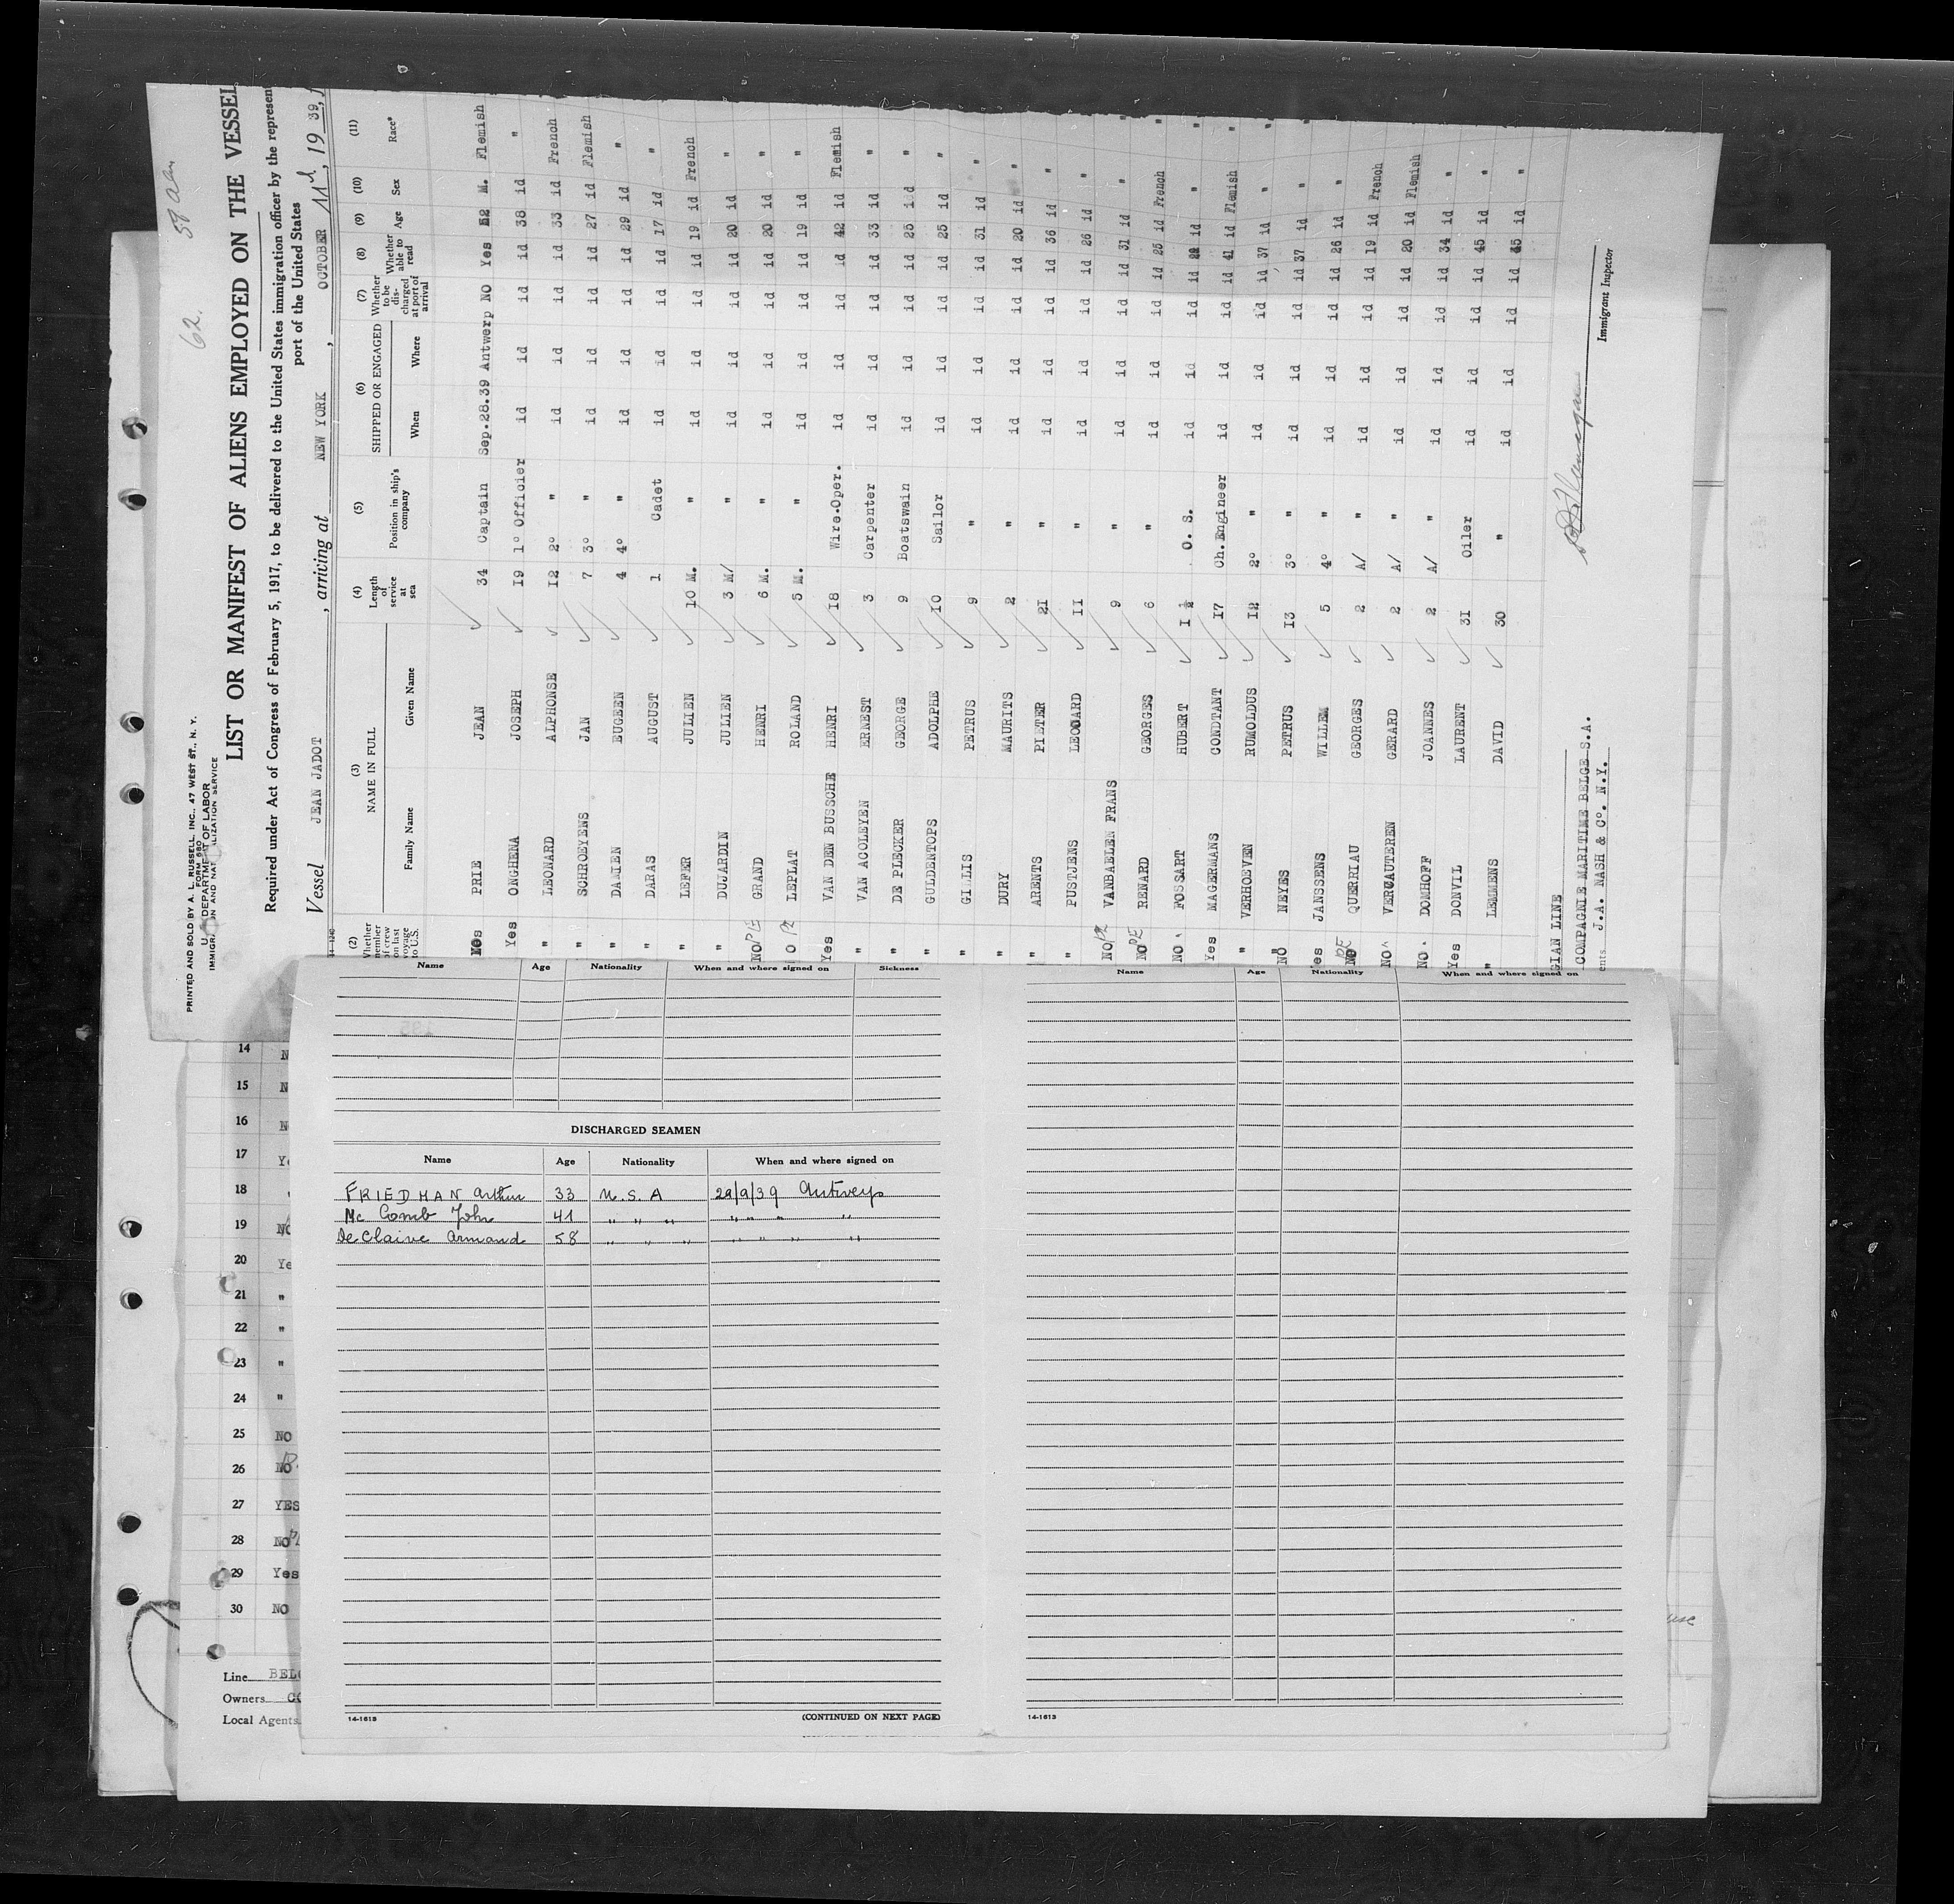 62. 58
PRINTED AND SOLD BY A. L. RUSSELL, INC., 47 WEST ST., N. Y.
FORM 680
U. S. DEPARTMENT OF LABOR
IMMIGRATION AND NATURALIZATION SERVICE
LIST OR MANIFEST OF ALIENS EMPLOYED ON THE VESSEL
Required under Act of Congress of February 5, 1917, to be delivered to the United States immigration officer by the represen
port of the United States
Vessel JEAN JADOT , arriving at NEW YORK , OCTOBER 11d, 19 39,
(2) (3) (4) (5) (6) (7) (8) (9) (10) (11)
Whether member of crew on last voyage to U.S. NAME IN FULL Length of service at sea Position in ship's company SHIPPED OR ENGAGED Whether to be discharged at port of arrival Whether able to read Age Sex Race*
Family Name Given Name When Where
PRIE JEAN 34 Captain Sep.28.39 Antwerp NO Yes 52 M. Flemish
Yes ONGHENA JOSEPH 19 1° Officier id id id id 38 id "
" LEONARD ALPHONSE 12 2° " id id id id 33 id French
" SCHROEYENS JAN 7 3° " id id id id 27 id Flemish
" DAMIEN EUGEEN 4 4° " id id id id 29 id "
" DARAS AUGUST 1 Cadet id id id id 17 id "
" LEFER JULIEN 10 M. " id id id id 19 id French
" DUJARDIN JULIEN 3 M/ " id id id id 20 id "
NO PE GRAND HENRI 6 M. " id id id id 20 id "
O PE LEPLAT ROLAND 5 M. " id id id id 19 id "
Yes VAN DEN BUSSCHE HENRI 18 Wire.Oper. id id id id 42 id Flemish
" VAN ACOLEYEN ERNEST 3 Carpenter id id id id 33 id "
" DE PLECKER GEORGE 9 Boatswain id id id id 25 id "
" GULDENTOPS ADOLPHE 10 Sailor id id id id 25 id "
" GILLIS PETRUS 9 " id id id id 31 id "
" DURY MAURITS 2 " id id id id 20 id "
" ARENTS PIETER 21 " id id id id 36 id "
" PUSTJENS LEOQARD 11 " id id id id 26 id "
NO PE VANBAELEN FRANS 9 " id id id id 31 id "
NO PE RENARD GEORGES 6 " id id id id 25 id French
NO FOSSART HUBERT 1 ½ O. S. id id id id id "
Yes MAGERMANS CONDTANT 17 Ch.Engineer id id id id 41 id Flemish
" VERHOEVEN RUMOLDUS 12 2° " id id id id 37 id "
NO NEYES PETRUS 13 3° " id id id id 37 id "
es JANSSENS WILLEM 5 4° " id id id id 26 id "
NO PE QUERRIAU GEORGES 2 A/ " id id id id 19 id French
NO VERCAUTEREN GERARD 2 A/ " id id id id 20 id Flemish
NO DOMHOFF JOANNES 2 A/ " id id id id 34 id "
Yes DONVIL LAURENT 31 Oiler id id id id 45 id "
" LEMMENS DAVID 30 " id id id id id "
GIAN LINE
COMPAGNIE MARITIME BELGE S.A.
ents J.A. NASH & Co. N.Y.
Immigrant Inspector
Name Age Nationality When and where signed on Sickness
DISCHARGED SEAMEN
Name Age Nationality When and where signed on
FRIEDMAN Arthur 33 U.S.A 29/9/39 Antwerp
Mc Comb John 41 " " " " " " "
DeClaive Armand 58 " " " " " " "
14-1613 (CONTINUED ON NEXT PAGE)
Name Age Nationality When and where signed on
14-1613
14 N
15 N
16 N
17 Ye
18
19 NO
20 Ye
21 "
22 "
23 "
24 "
25 NO
26 NO
27 YES
28 NO
29 Yes
30 NO
Line BELG
Owners CO
Local Agents